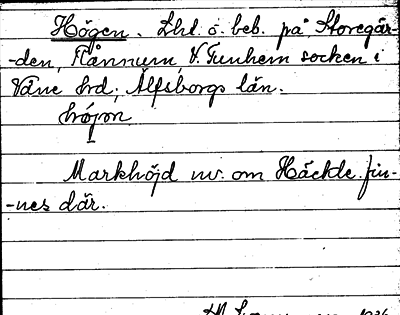 Högen. Lht. o. beb. på Storegår-
-den, Flånnum V. Tunhem socken i
Väne hrd; Älfsborgs län.
hójon
Markhöjd nv. om Häckle. fin-
-nes där.